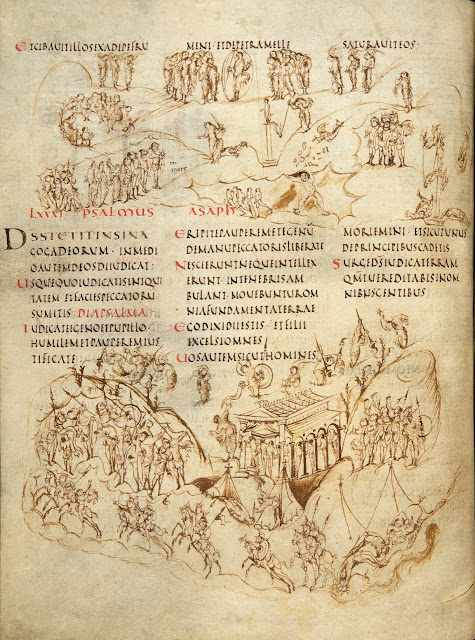 ETCIBAUITILLOSEXADIPEFRU MENTI·ETDEPETRAMELLE SATURAUITEOS·
LXXXI PSALMUS ASAPH
DSSTETITINSINA
GOGADEORUM·INMEDI
OAUTEMDEOSDIIUDICAT:
USQUEQUOIUDICATISINIQUI
TATEM·ETFACIESPECCATORU
SUMITIS·DIAPSALMA·
IUDICATEEGENOETPUPILLO·
HUMILEMETPAUPEREMIUS
TIFICATE·
ERIPITEPAUPEREMETEGENU
DEMANUPECCATORISLIBERATE
NESCIERUNTNEQUEINTELLEX
ERUNT·INTENEBRISAM
BULANT·MOUEBUNTUROM
NIAFUNDAMENTATERRAE
EGODIXIDIIESTIS·ETFILII
EXCELSIOMNES
UOSAUTEMSICUTHOMINES
MORIEMINI·ETSICUTUNUS
DEPRINCIPIBUSCADETIS·
SURGEDSIUDICATERRAM
QMTUEREDITABISINOM
NIBUSGENTIBUS·